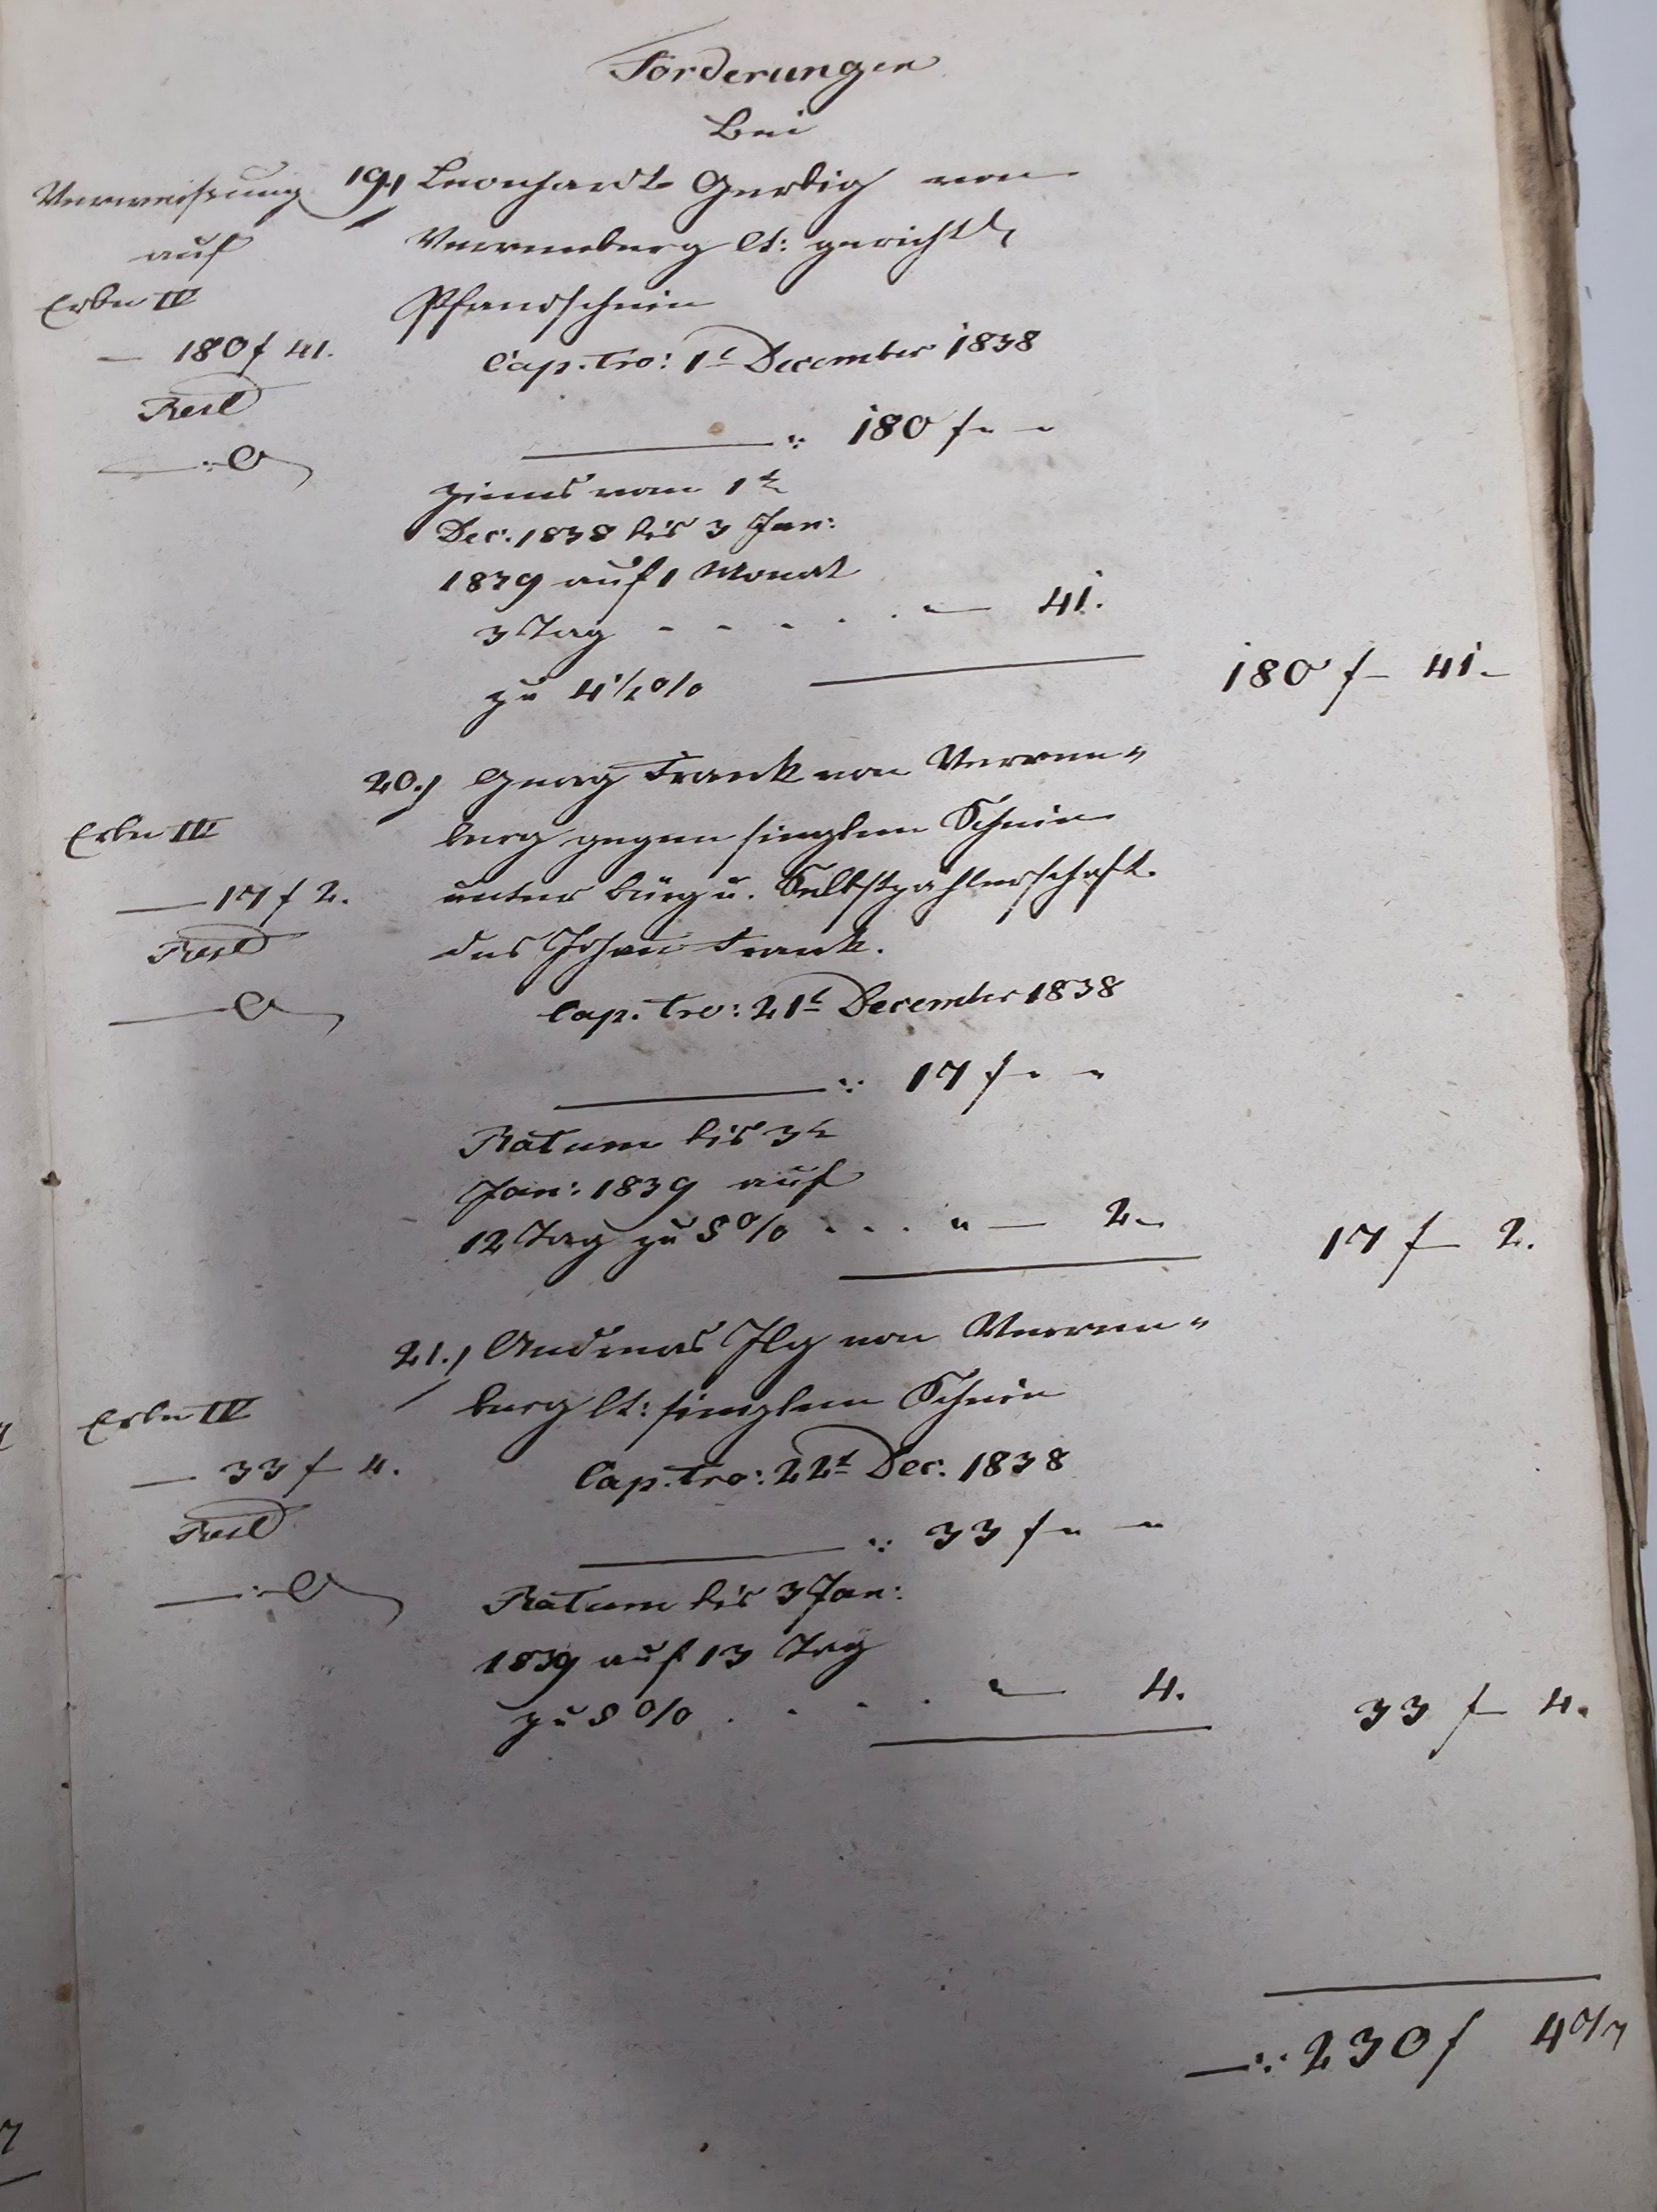 Forderungen
Bei
Verweisung
auf
Erbe IV
— 180 f 41.
Rest
—:0
19.) Leonhardt Gerbig von
Verrenberg lt: gerichtl.
Pfandschein
Cap. tro: 1t December 1838
—:: 180 f " "
Zinnß vom 1t
Dec: 1838 bis 3 Jan:
1839 auf 1 Monat
3 Tag - - - . . . " — 41.
zu 4 1/2 %
180 f — 41.
Erbe IV
— 17 f 2.
Rest
—0
20.) Georg Frank von Verren-
berg gegen simplen Schein
unter Bürg u. Selbstzahlerschaft.
des Johann Frank.
Cap. tro: 21t December 1838
—:: 17 f " "
Ratum bis 3t
Jan: 1839 auf
12 Tag zu 5 % . . . " — 2.
17 f — 2.
Erbe IV
— 33 f — 4.
Rest
—:0
21.) Andreas Ilg von Verren-
berg lt: simplen Schein
Cap. tro: 22t Dec. 1838
—:: 33 f " "
Ratum bis 3 Jan:
1839 auf 13 Tag
zu 5 % . . . . " — 4.
33 f — 4.
—:: 230 f 47